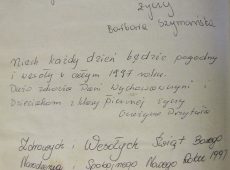 życzy
Barbara Szymańska
Niech każdy dzień będzie pogodny
i wesoły w całym 1997 roku.
Dużo zdrowia Pani Wychowawczyni i
Dzieciakom z klasy pierwszej życzy
Grażyna Przybyła
Zdrowych i Wesołych Świąt Bożego
Narodzenia i Spokojnego Nowego Roku 1997